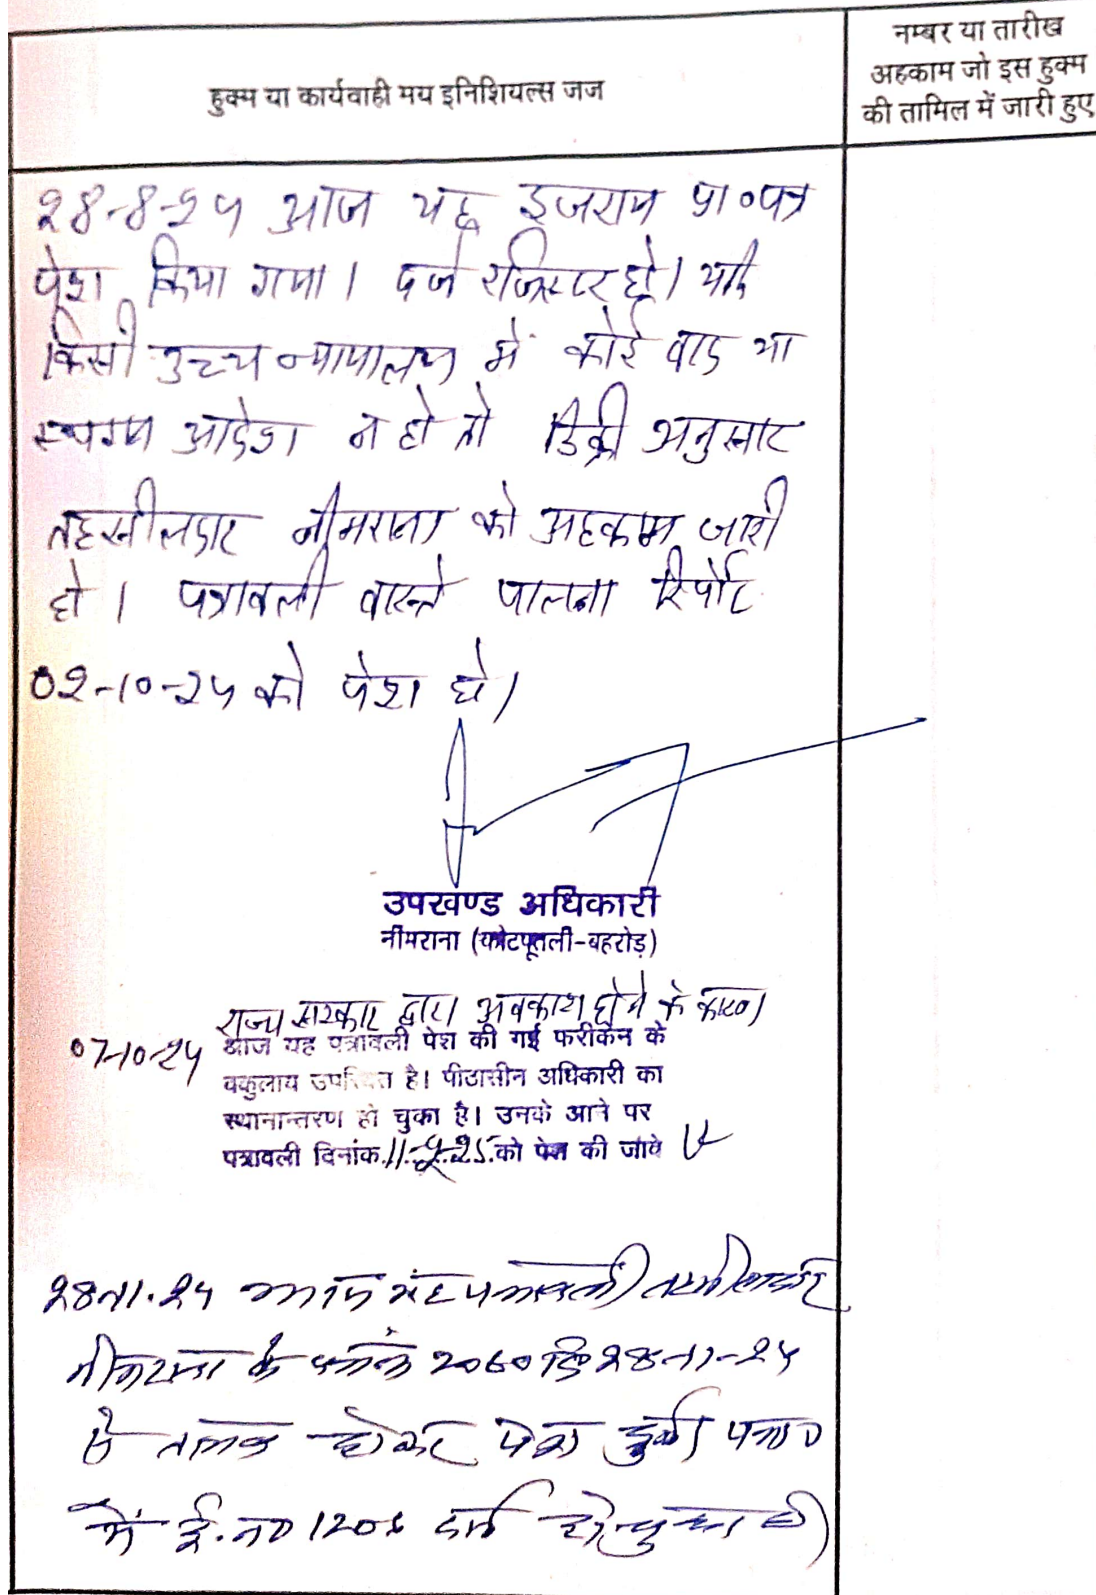 हुक्म या कार्यवाही मय इनिशियल्स जज
नम्बर या तारीख
अहकाम जो इस हुक्म
की तामिल में जारी हुए
28-8-25 आज यह इजराय प्रा०पत्र
पेश किया गया। दर्ज रजिस्टर हो। यदि
किसी उच्च न्यायालय में कोई वाद या
स्थगन आदेश न हो तो डिक्री अनुसार
तहसीलदार नीमराना को अहकाम जारी
हो। पत्रावली वास्ते पालना रिर्पोट
02-10-25 को पेश हो।
उपखण्ड अधिकारी
नीमराना (कोटपूतली-बहरोड़)
राज्य सरकार द्वारा अवकाश होने के कारण
07-10-25 आज यह पत्रावली पेश की गई फरीकेन के
वकुलाय उपस्थित है। पीठासीन अधिकारी का
स्थानान्तरण हो चुका है। उनके आने पर
पत्रावली दिनांक को पेश की जावे
28-11-25 आज यह पत्रावली तहसीलदार
नीमराना के 2060 दि 28-11-25
से तलब होकर पेश हुई।
में ई. न० दर्ज हो चुका है।